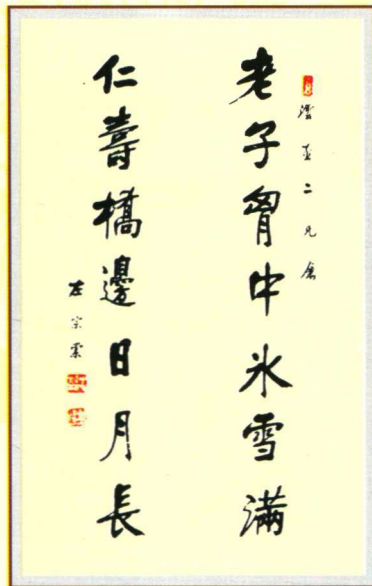 二兄屬
老子胷中氷雪滿
仁壽橋邊日月長
左宗棠